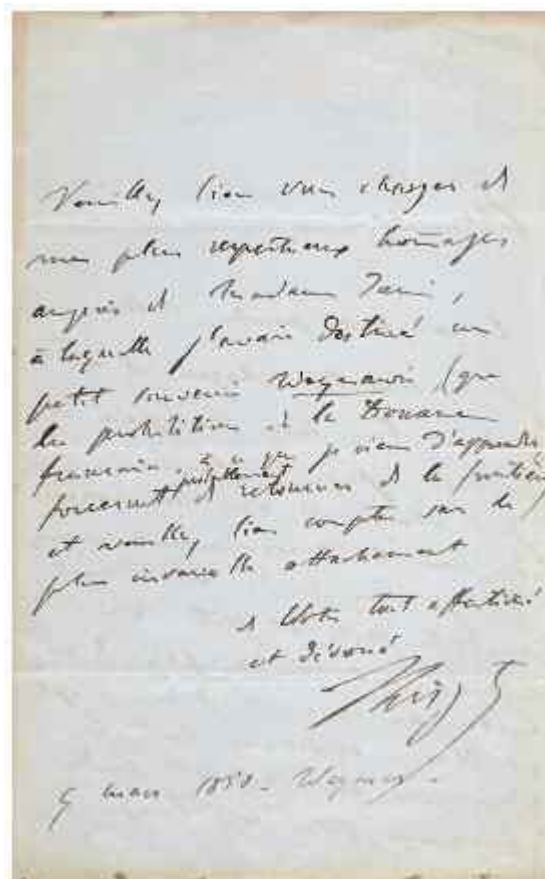 Veuillez bien vous charger de
mes plus respectueux hommages
auprès de Madame
à laquelle j'avais destiné un
petit souvenir Weymarois (que
les prohibitions de la Douane
française, à ce que je viens d'apprendre,
forceront probablement de retourner de la frontière)
et veuillez bien compter sur le
plus invariable attachement
de Votre tout affectionné
et dévoué
Liszt
mars 1850. Weymar.